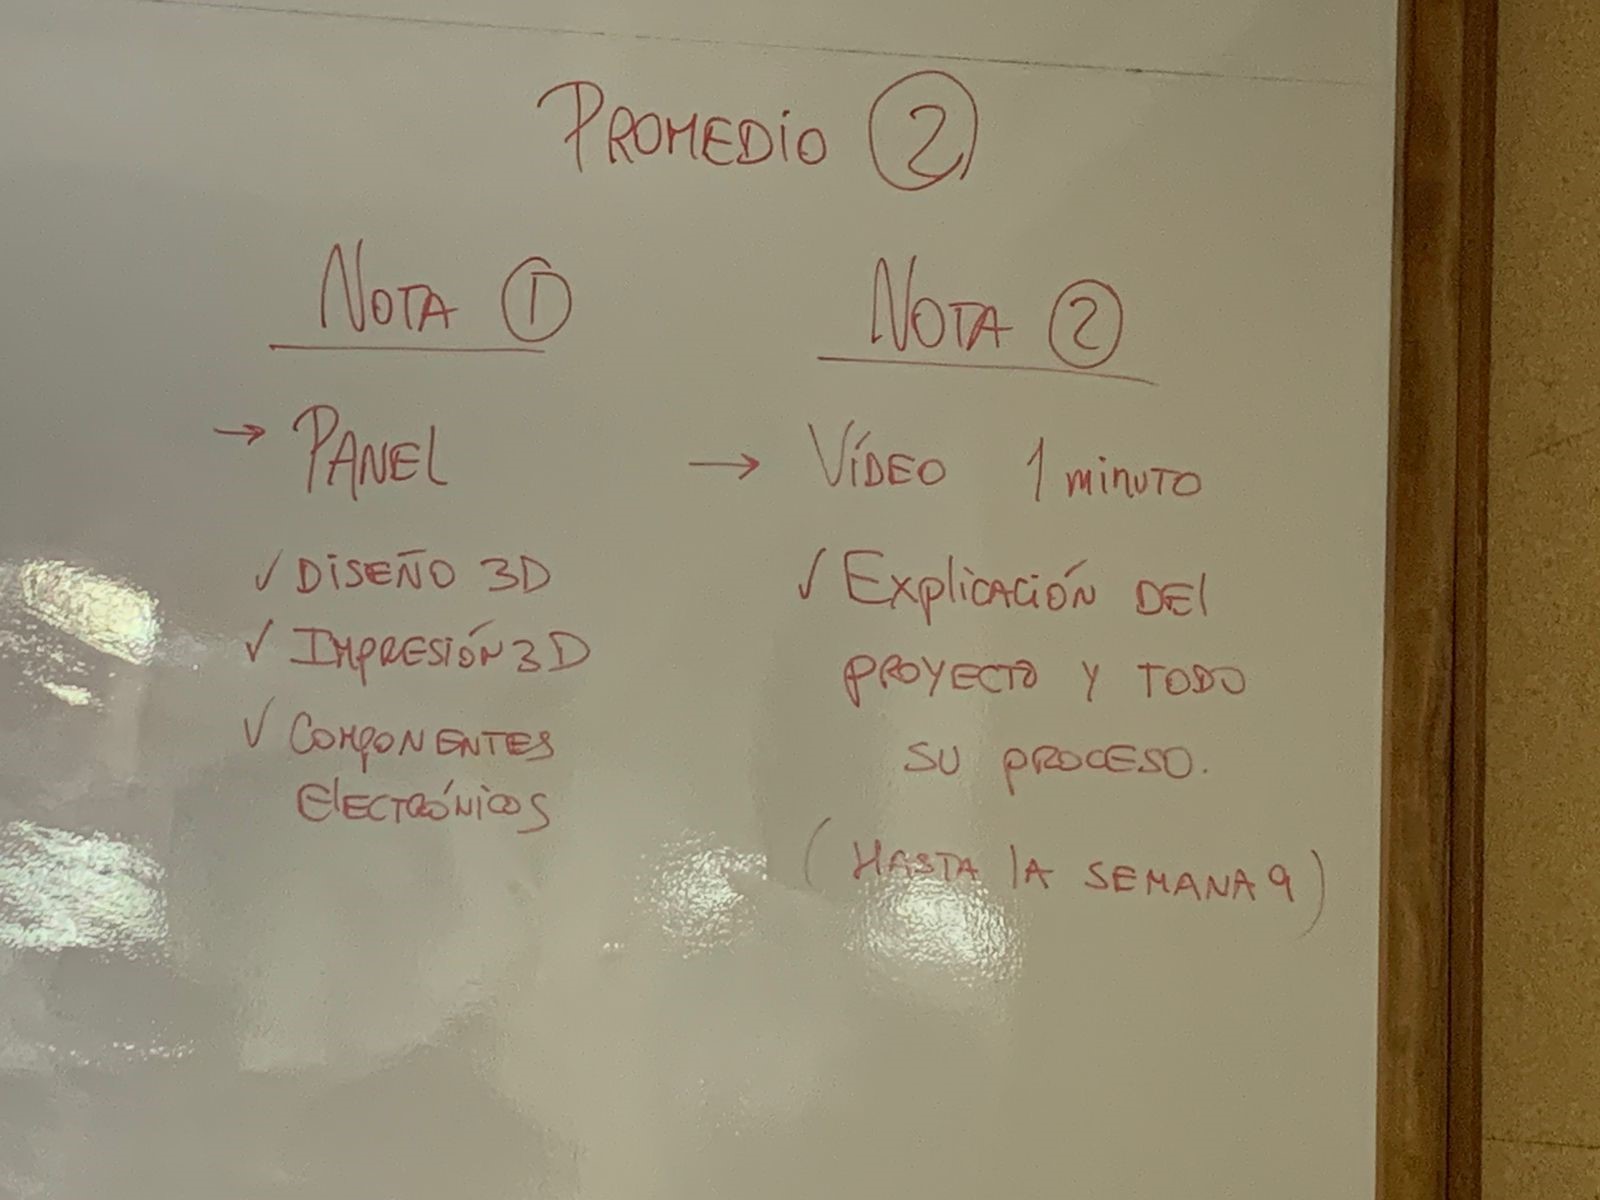 PROMEDIO 2
NOTA 1
→ PANEL
✓ DISEÑO 3D
✓ IMPRESIÓN 3D
✓ COMPONENTES
ELECTRÓNICOS
NOTA 2
→ VÍDEO 1 MINUTO
✓ EXPLICACIÓN DEL
PROYECTO Y TODO
SU PROCESO.
(HASTA LA SEMANA 9)